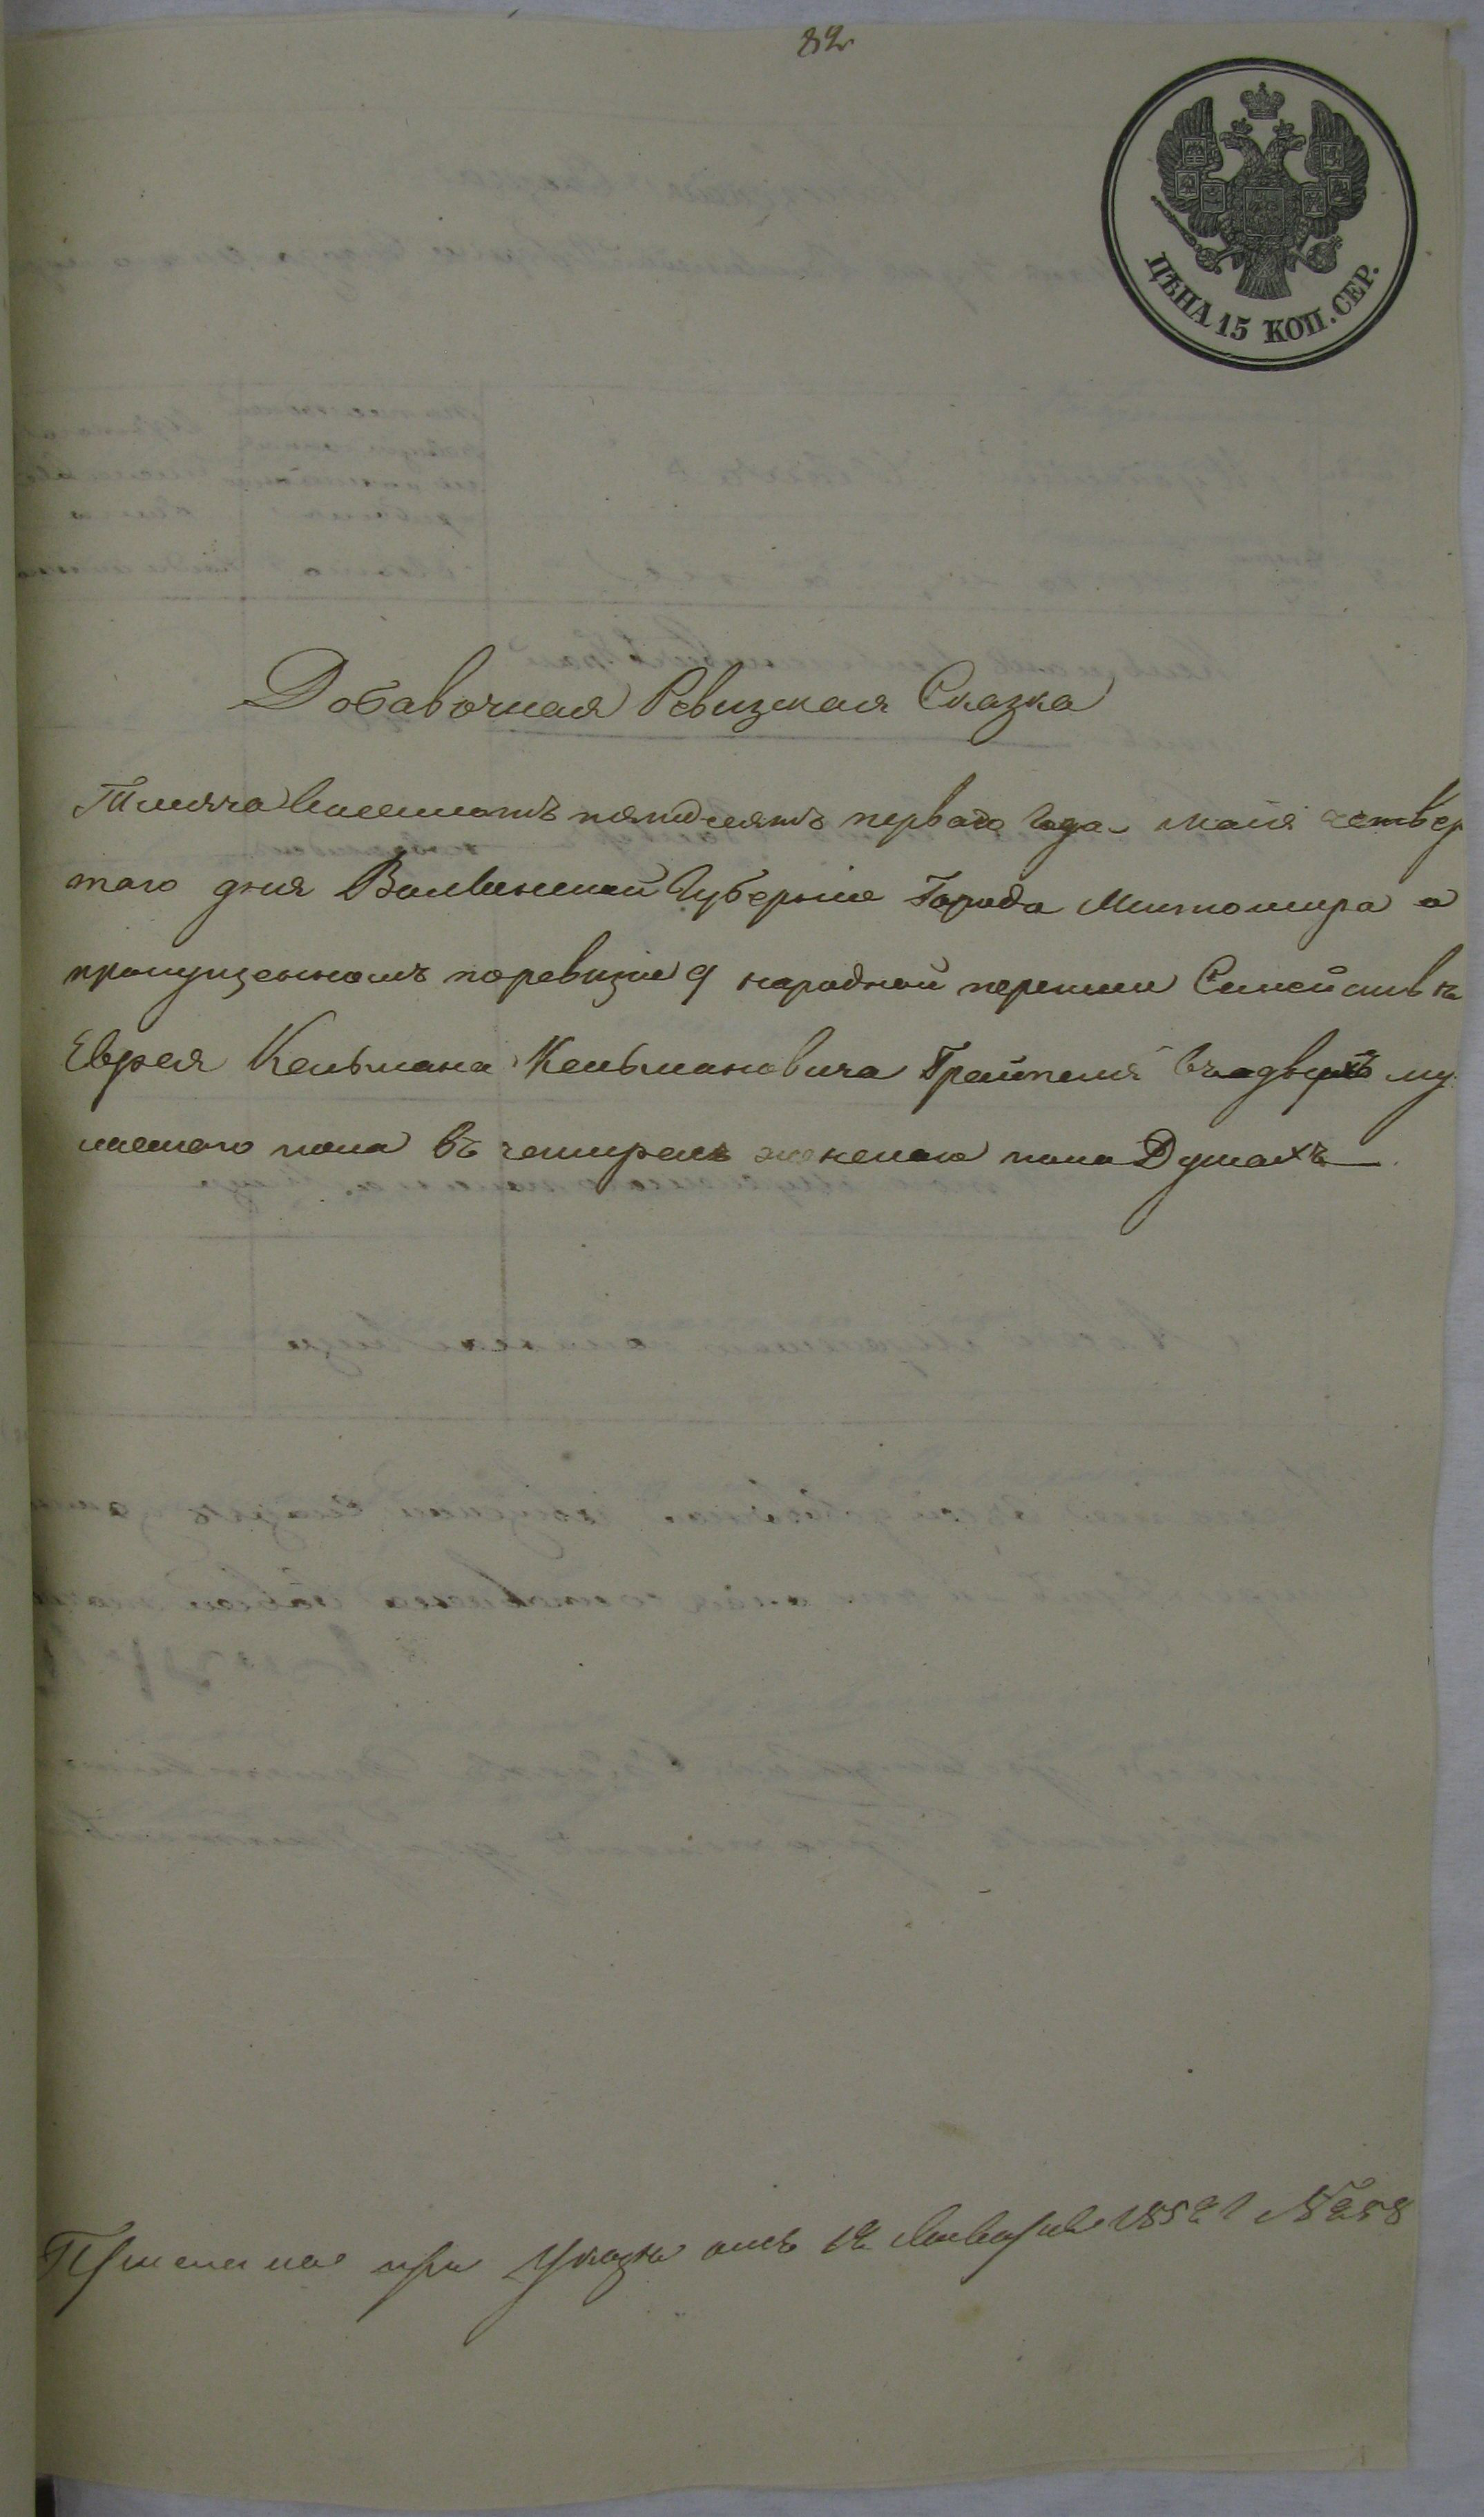 82
ЦѢНА 15 КОП. СЕР.
Добавочная Ревизская Сказка
Тысяча восемьсотъ пятьдесятъ перваго Года мая четвер
таго дня Волынской Губерніи Города Житомира о
пропущенномъ поревизіи 9 народной переписи Семействѣ
Еврея Кельмана Кельмановича в двухъ му
жескаго пола въ четырехъ женскаго пола Душахъ
при Указѣ отъ 12 Января 1852 № 258